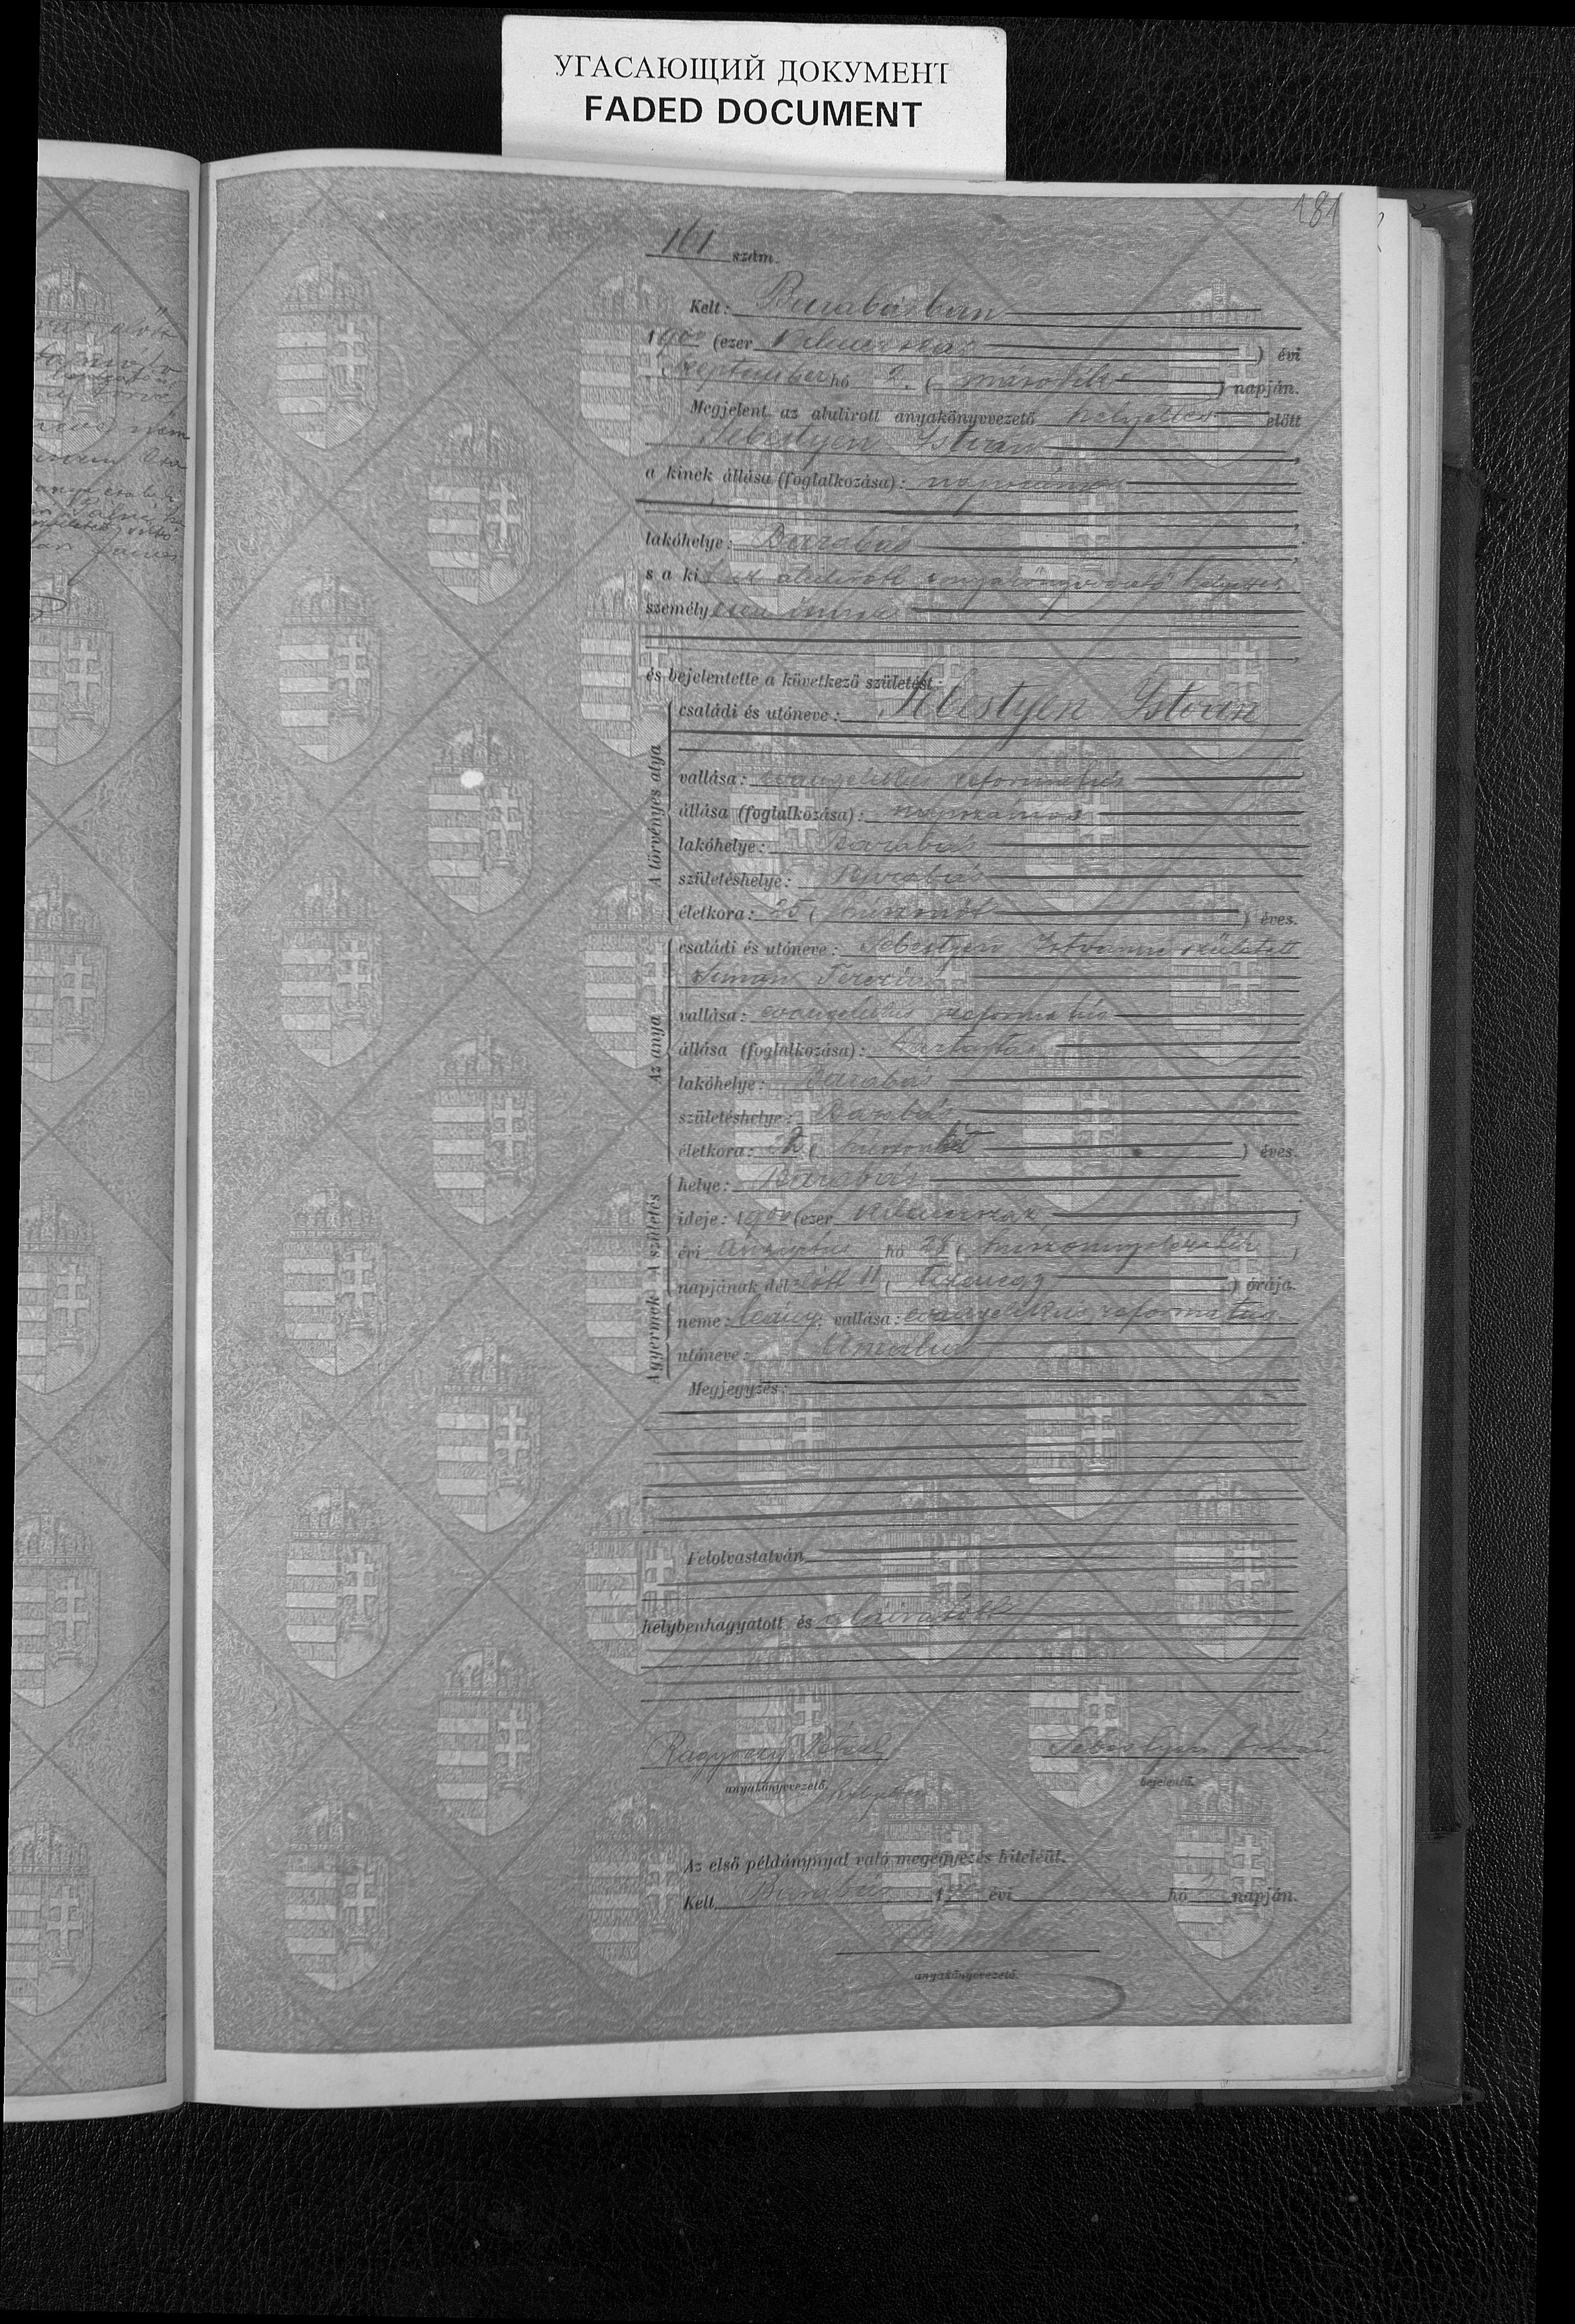 УГАСАЮЩИЙ ДОКУМЕНТ
FADED DOCUMENT
181
161 szám.
Kelt: Barabásban
1900 (ezer kilenczszáz) évi
szeptember hó 2. (második) napján.
Megjelent az alulirott anyakönyvvezető helyettes előtt
Sebestyén István,
a kinek állása (foglalkozása): napszámos
lakóhelye: Barabás
s a kit az alulirott anyakönyvvezető helyettes
személyesen ismer
és bejelentette a következő születést:
A törvényes atyja
családi és utóneve: Sebestyén István
vallása: evangelikus református
állása (foglalkozása): napszámos
lakóhelye: Barabás
születéshelye: Barabás
életkora: 25 (húszonöt) éves.
Az anya
családi és utóneve: Sebestyén Istvánné született
Simon Terézia
vallása: evangelikus református
állása (foglalkozása): háztartás
lakóhelye: Barabás
születéshelye: Barabás
életkora: 22 (húszonkét) éves.
A születés
helye: Barabás
ideje: 1900 (ezer kilenczszáz)
évi augusztus hó 28 (huszonnyolczadik)
napjának délelőtt 11 (tizenegy) órája.
A gyermek
neme: leány; vallása: evangelikus református
utóneve:
Megjegyzés:
Felolvastatván,
helybenhagyatott és aláiratott
Sebestyén István
anyakönyvvezető. helyettes
bejelentő.
Az első példánynyal való megegyezés hiteléül.
Kelt Barabás 1900 évi hó 2 napján.
anyakönyvvezető.